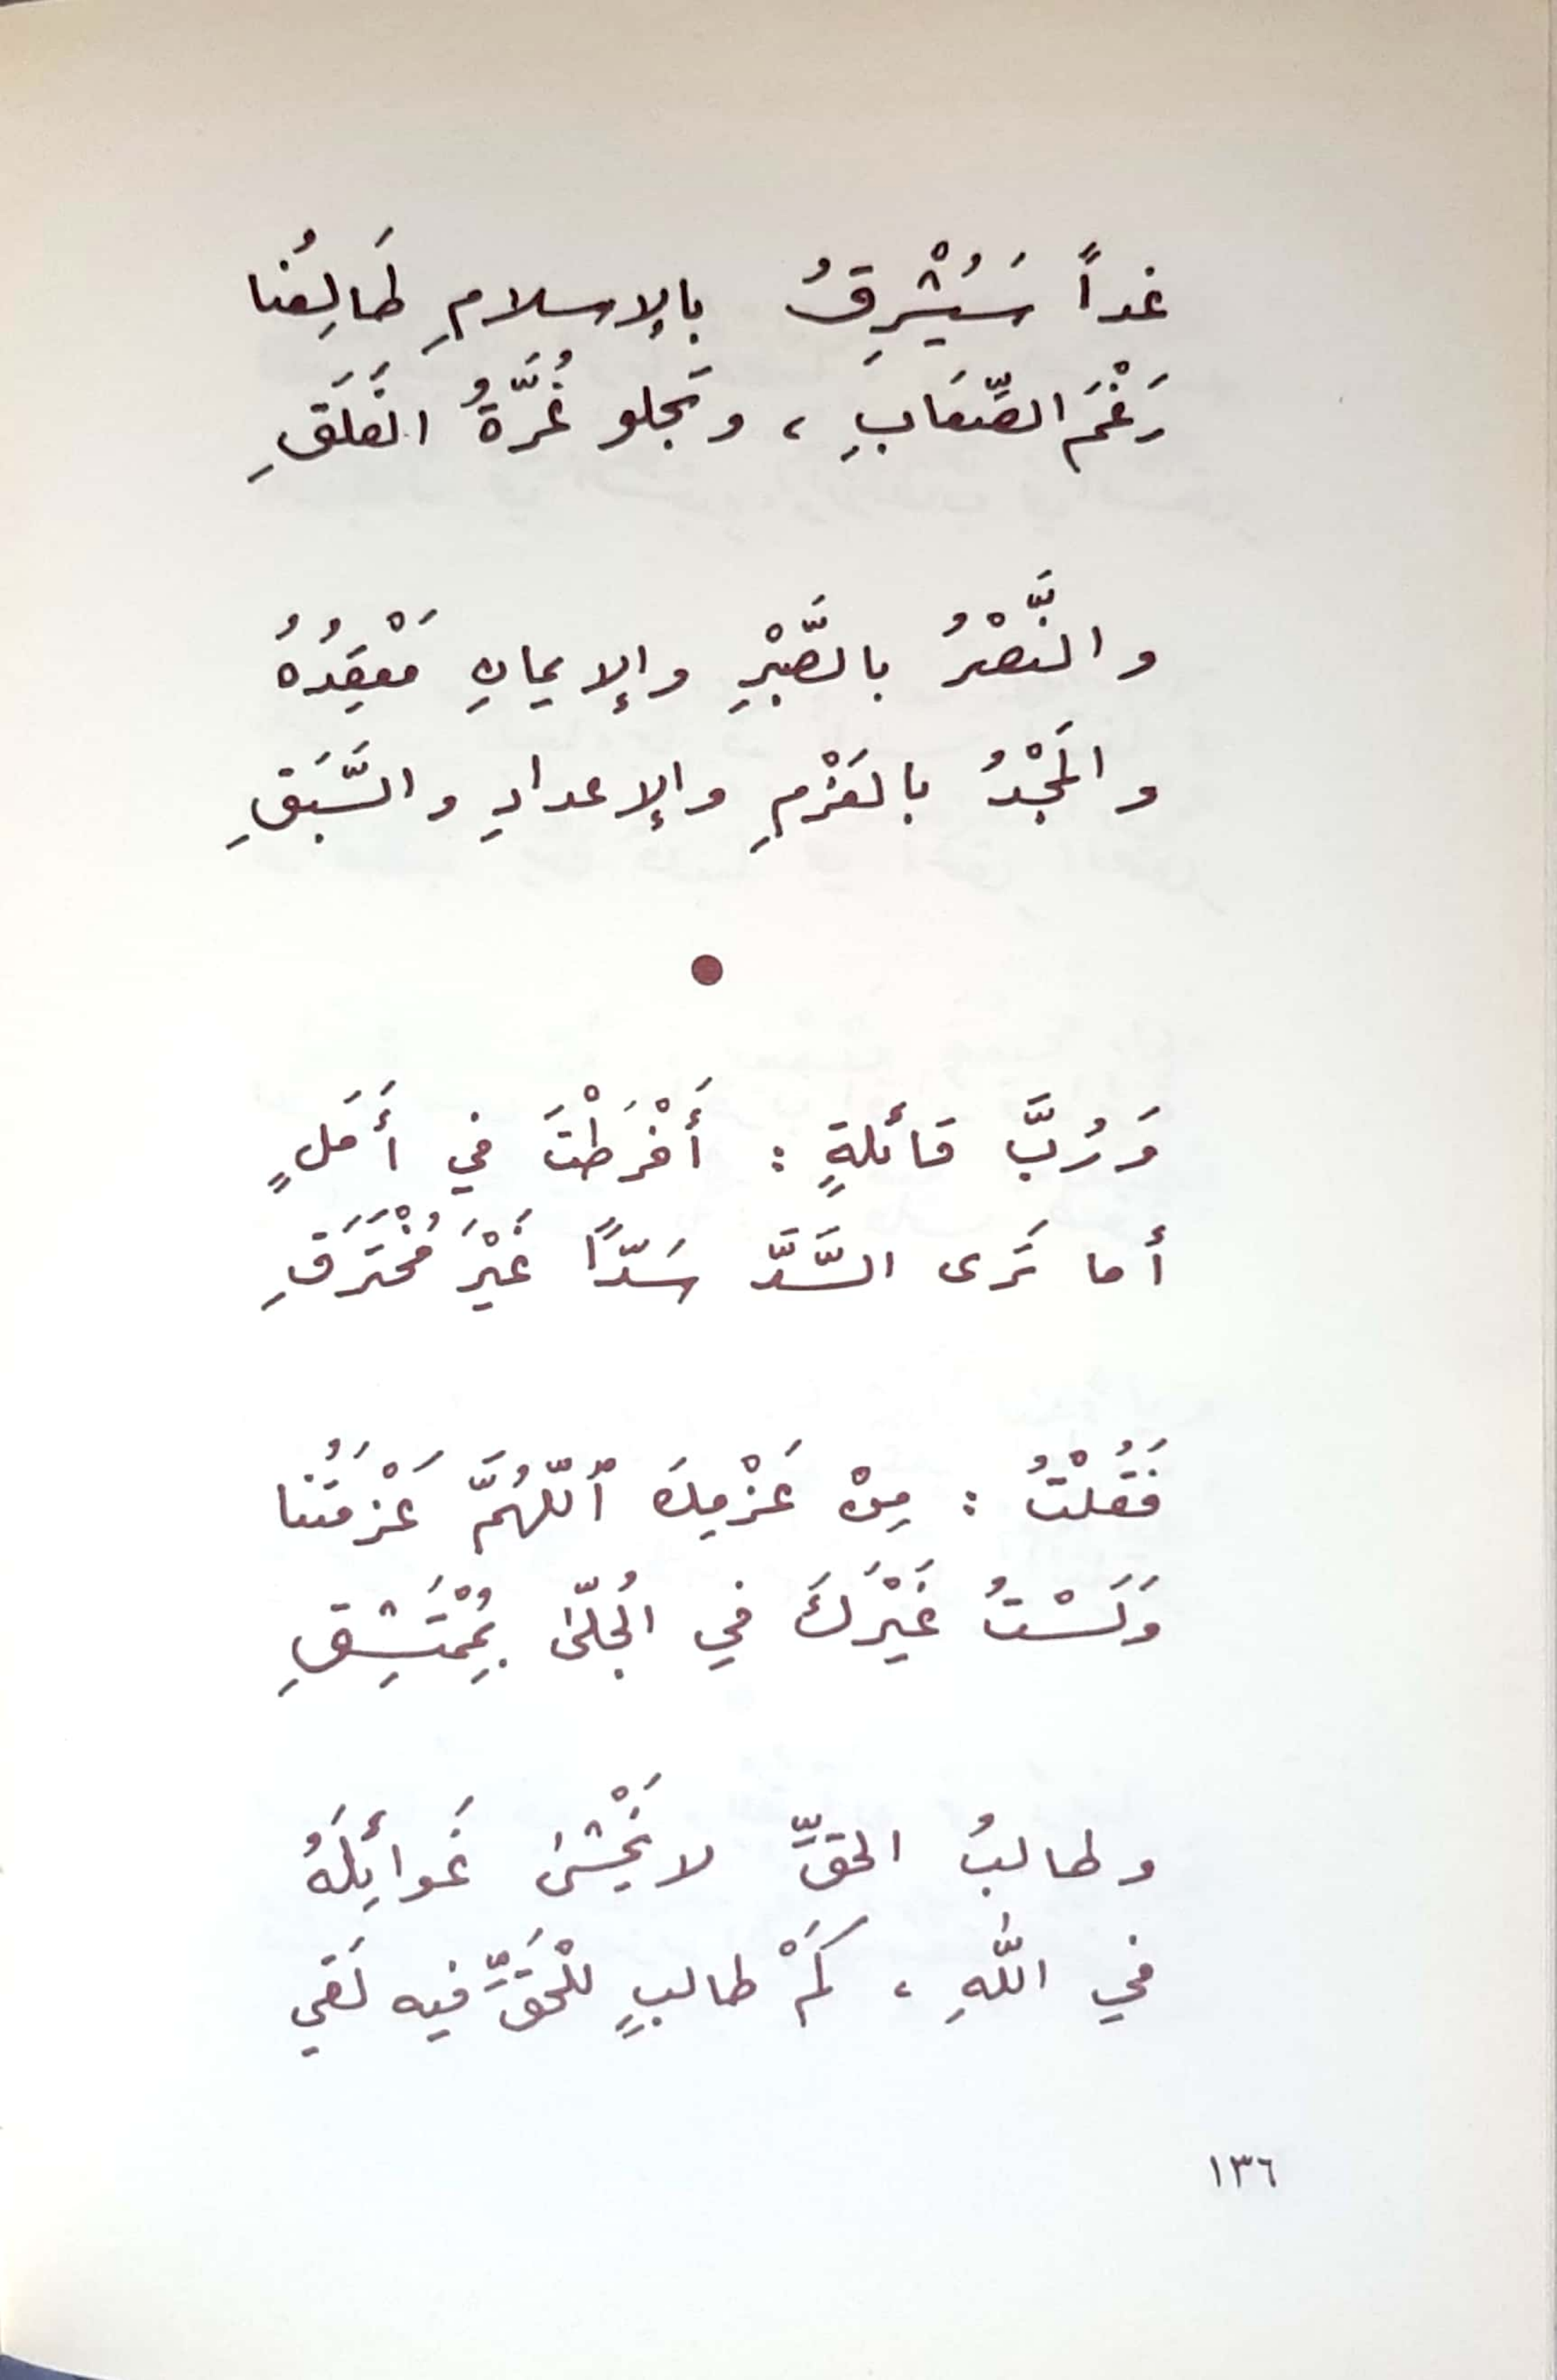 غداً سَيُشْرِقُ بالإسلامِ طَالِعُنا
رَغْمَ الصِّعَابِ ، وتَجلو غُرَّةُ الفَلَقِ
والنَّصْرُ بالصَّبْرِ والإيمانِ مَعْقِدُهُ
والمَجْدُ بالعَزْمِ والإعدادِ والسَّبَقِ
وَرُبَّ قائلةٍ : أَفْرَطْتَ في أَمَلٍ
أما تَرى السَّدَّ سَدًّا غَيْرَ مُخْتَرَقِ
فَقُلْتُ : مِنْ عَزْمِكَ ٱللّهُمَّ عَزْمَتُنا
وَلَسْتُ غَيْرَكَ في الجُلّىٰ بِمُمْتَشِقِ
وطالبُ الحقِّ لا يَخْشىٰ غَوائِلَهُ
في اللّٰهِ ، كَمْ طالبٍ للْحَقِّ فيه لَقي
١٣٦